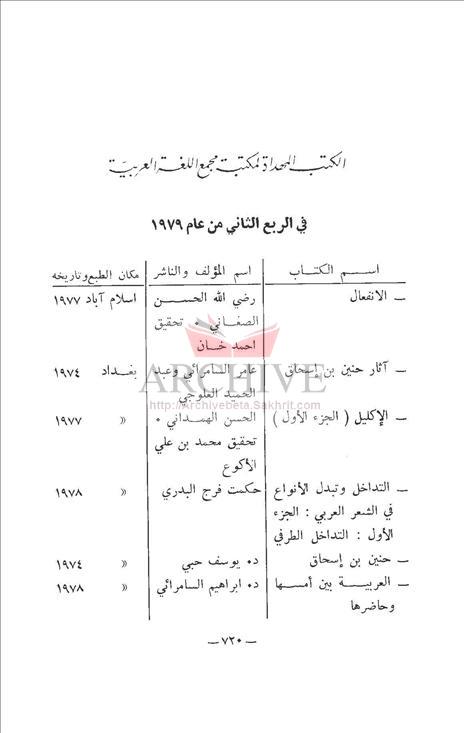 الكتب المهداة لمكتبة مجمع اللغة العربية
في الربع الثاني من عام ١٩٧٩
اسم الكتاب | اسم المؤلف والناشر | مكان الطبع وتاريخه
ـ الانفعال | رضي الله الحسن | اسلام آباد ١٩٧٧
الصغاني ٠ تحقيق
احمد خان
ـ آثار حنين بن إسحاق | عامر السامرائي وعبد | بغداد ١٩٧٤
الحميد العلوجي
ARCHIVE
http://Archivebeta.Sakhrit.com
ـ الإكليل ( الجزء الأول ) | الحسن الهمداني ٠ | » ١٩٧٧
تحقيق محمد بن علي
الأكوع
ـ التداخل وتبدل الأنواع | حكمت فرج البدري | » ١٩٧٨
في الشعر العربي : الجزء
الأول : التداخل الطرفي
ـ حنين بن إسحاق | د٠ يوسف حبي | » ١٩٧٤
ـ العربية بين أمسها | د٠ ابراهيم السامرائي | » ١٩٧٨
وحاضرها
ـ ٧٢٠ ـ